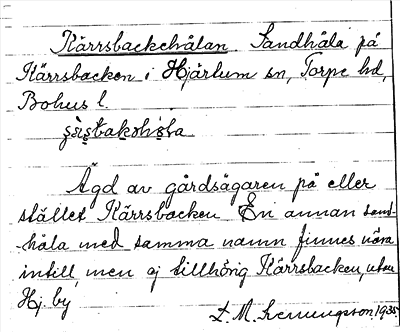 Kärrsbackehålan. Sandhåla på
Kärrsbacken i Hjärtum sn, Torpe hd,
Bohus l.
Ägd av gårdsägaren på eller
stället Kärrsbacken En annan sand-
-håla med samma namn finnes nära
intill, men ej tillhörig Kärrsbacken, utan
Hj. by
1935.